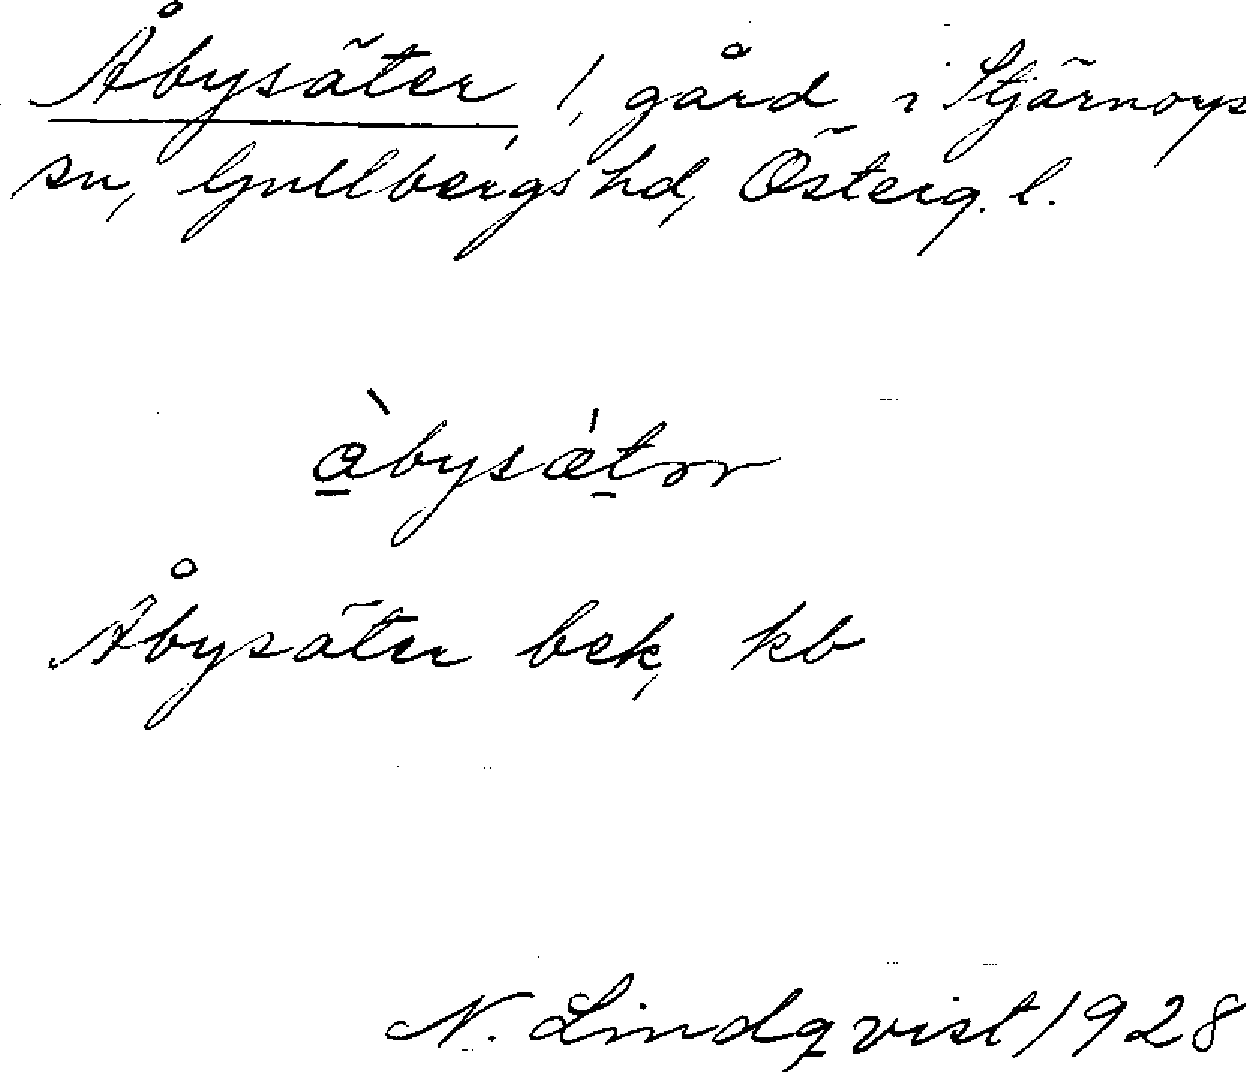 Åbysäter, 1, gård i Stjärnorps
sn, Gullbergs hd, Österg. l.
àbysä́tər
Åbysäter bek, kb
N. Lindqvist 1928